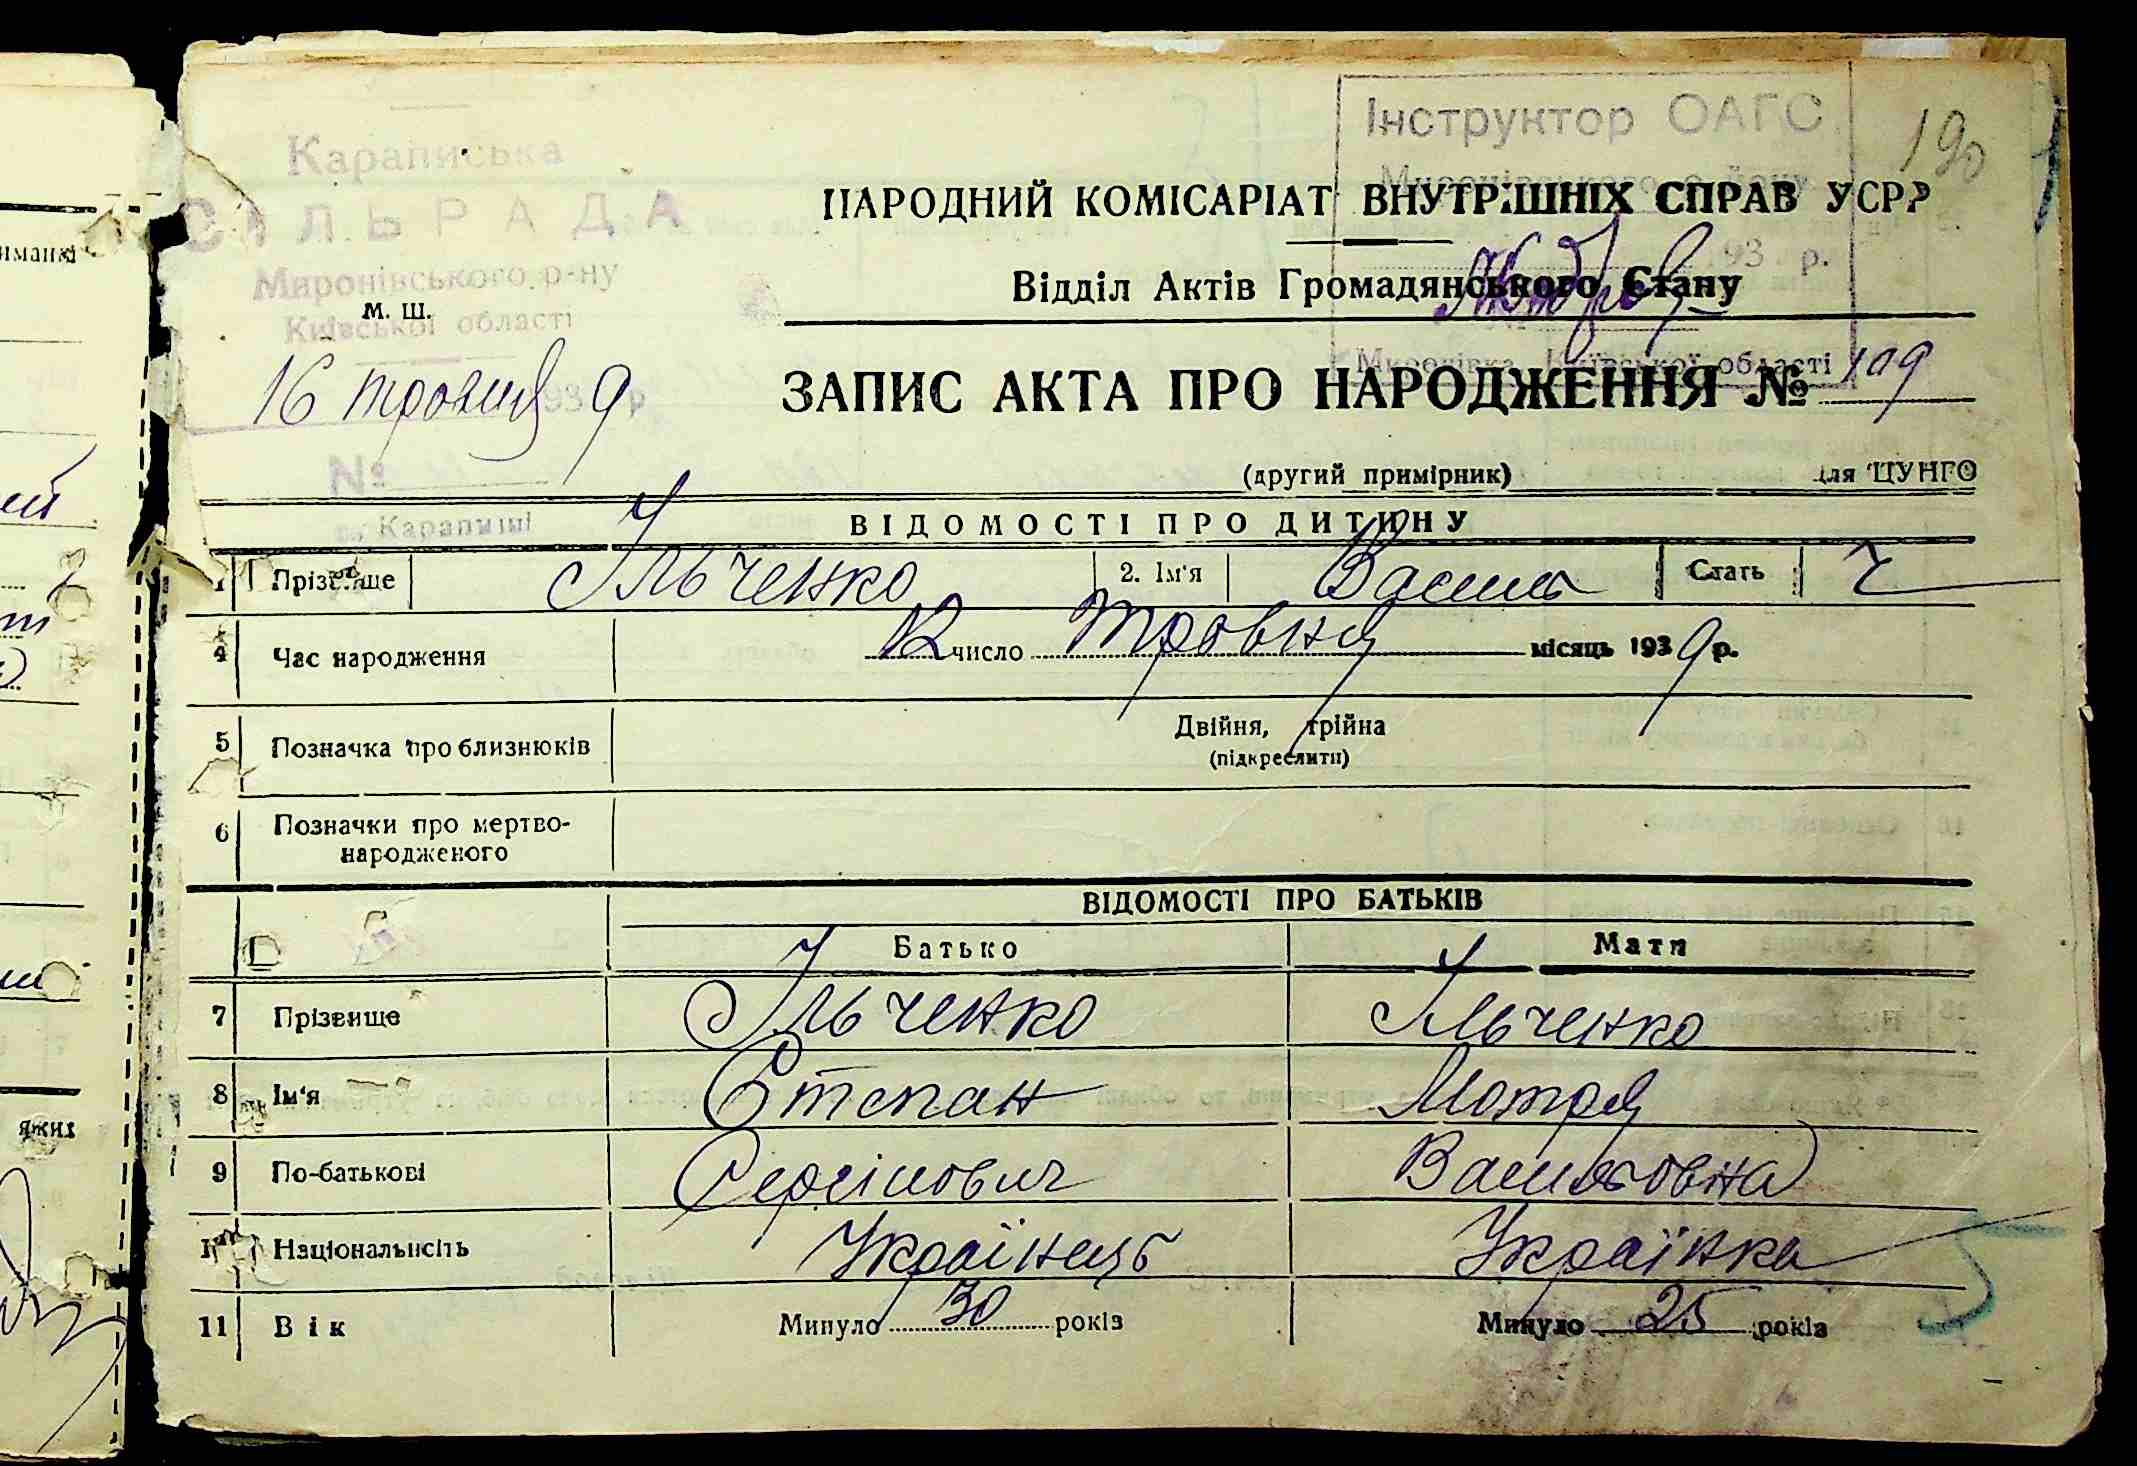 190
Караписька
СІЛЬРАДА
Миронівського р-ну
Київської області
М. Ш.
16 травня 1939 р
№
Карапиші
Інструктор ОАГС
Миронівського району
193 р.
Миронівка, Київської області
НАРОДНИЙ КОМІСАРІАТ ВНУТРІШНІХ СПРАВ УСРР
Відділ Актів Громадянського Стану
ЗАПИС АКТА ПРО НАРОДЖЕННЯ № 109
(другий примірник) для ЦУНГО
ВІДОМОСТІ ПРО ДИТИНУ
1 Прізвище Ільченко 2. Ім'я Василь Стать Ч
4 Час народження 12 число травня місяць 1939 р.
5 Позначка про близнюків Двійня, трійна
(підкреслити)
6 Позначки про мертво-
народженого
ВІДОМОСТІ ПРО БАТЬКІВ
Батько Мати
7 Прізвище Ільченко Ільченко
8 Ім'я Степан Мотря
9 По-батькові Сергійович Васильовна
10 Національність Українець Українка
11 Вік Минуло 30 років Минуло 25 років
5
яких